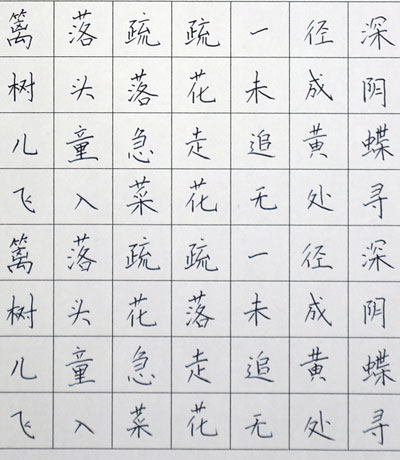 篱落疏疏一径深
树头落花未成阴
儿童急走追黄蝶
飞入菜花无处寻
篱落疏疏一径深
树头花落未成阴
儿童急走追黄蝶
飞入菜花无处寻